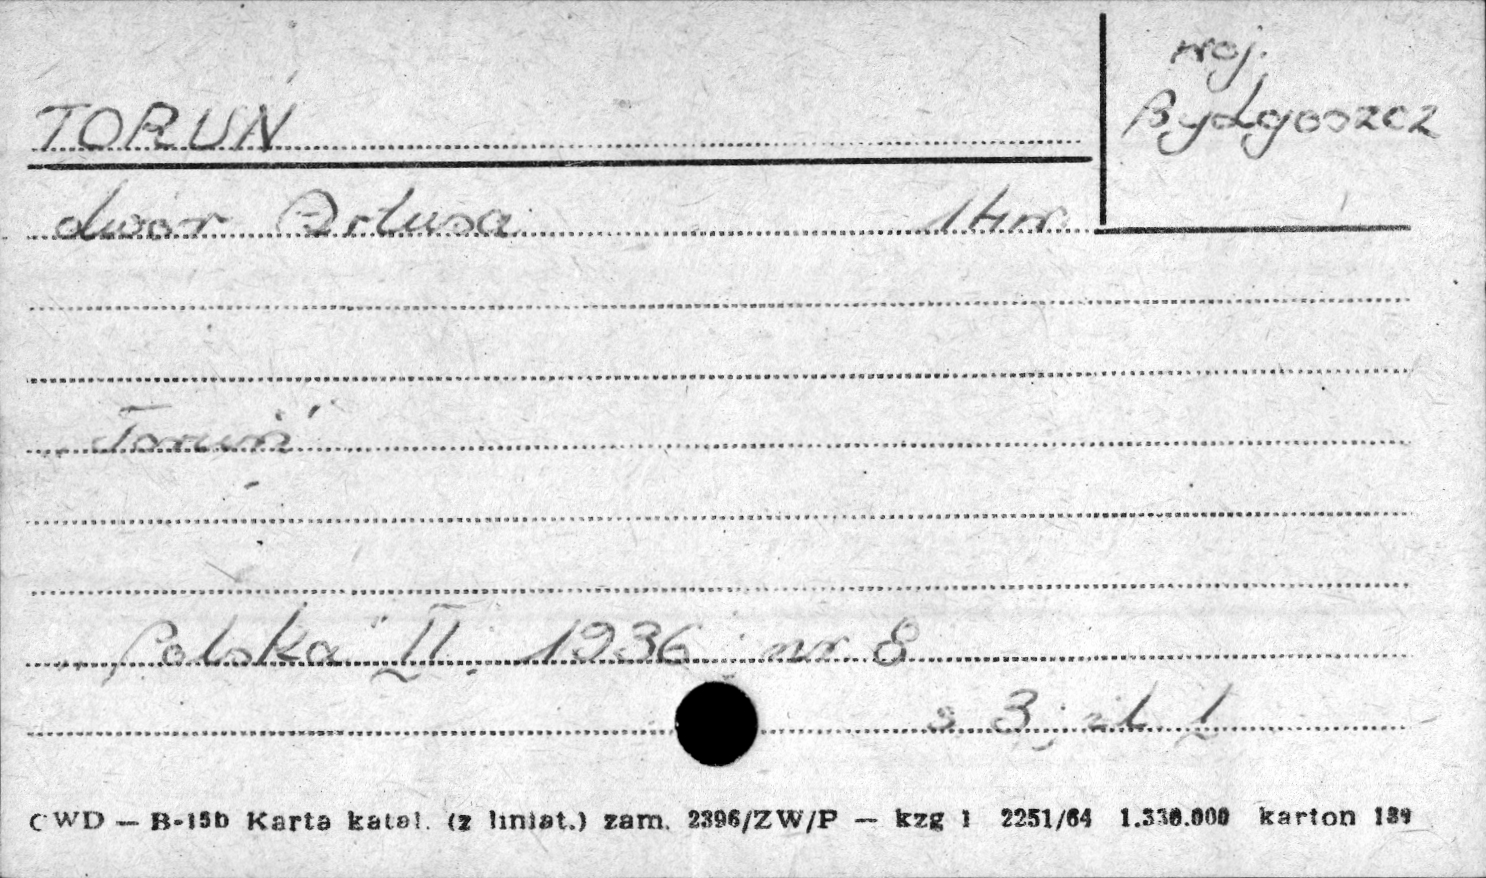 TORUŃ
woj.
Bydgoszcz
dwór Artusa 14 w.
"Toruń"
"Polska" II. 1936, nr. 8
s. 3, il. 1
CWD — B-15b Karta katal. (z liniat.) zam. 2396/ZW/P — kzg 1 2251/64 1.330.000 karton 189